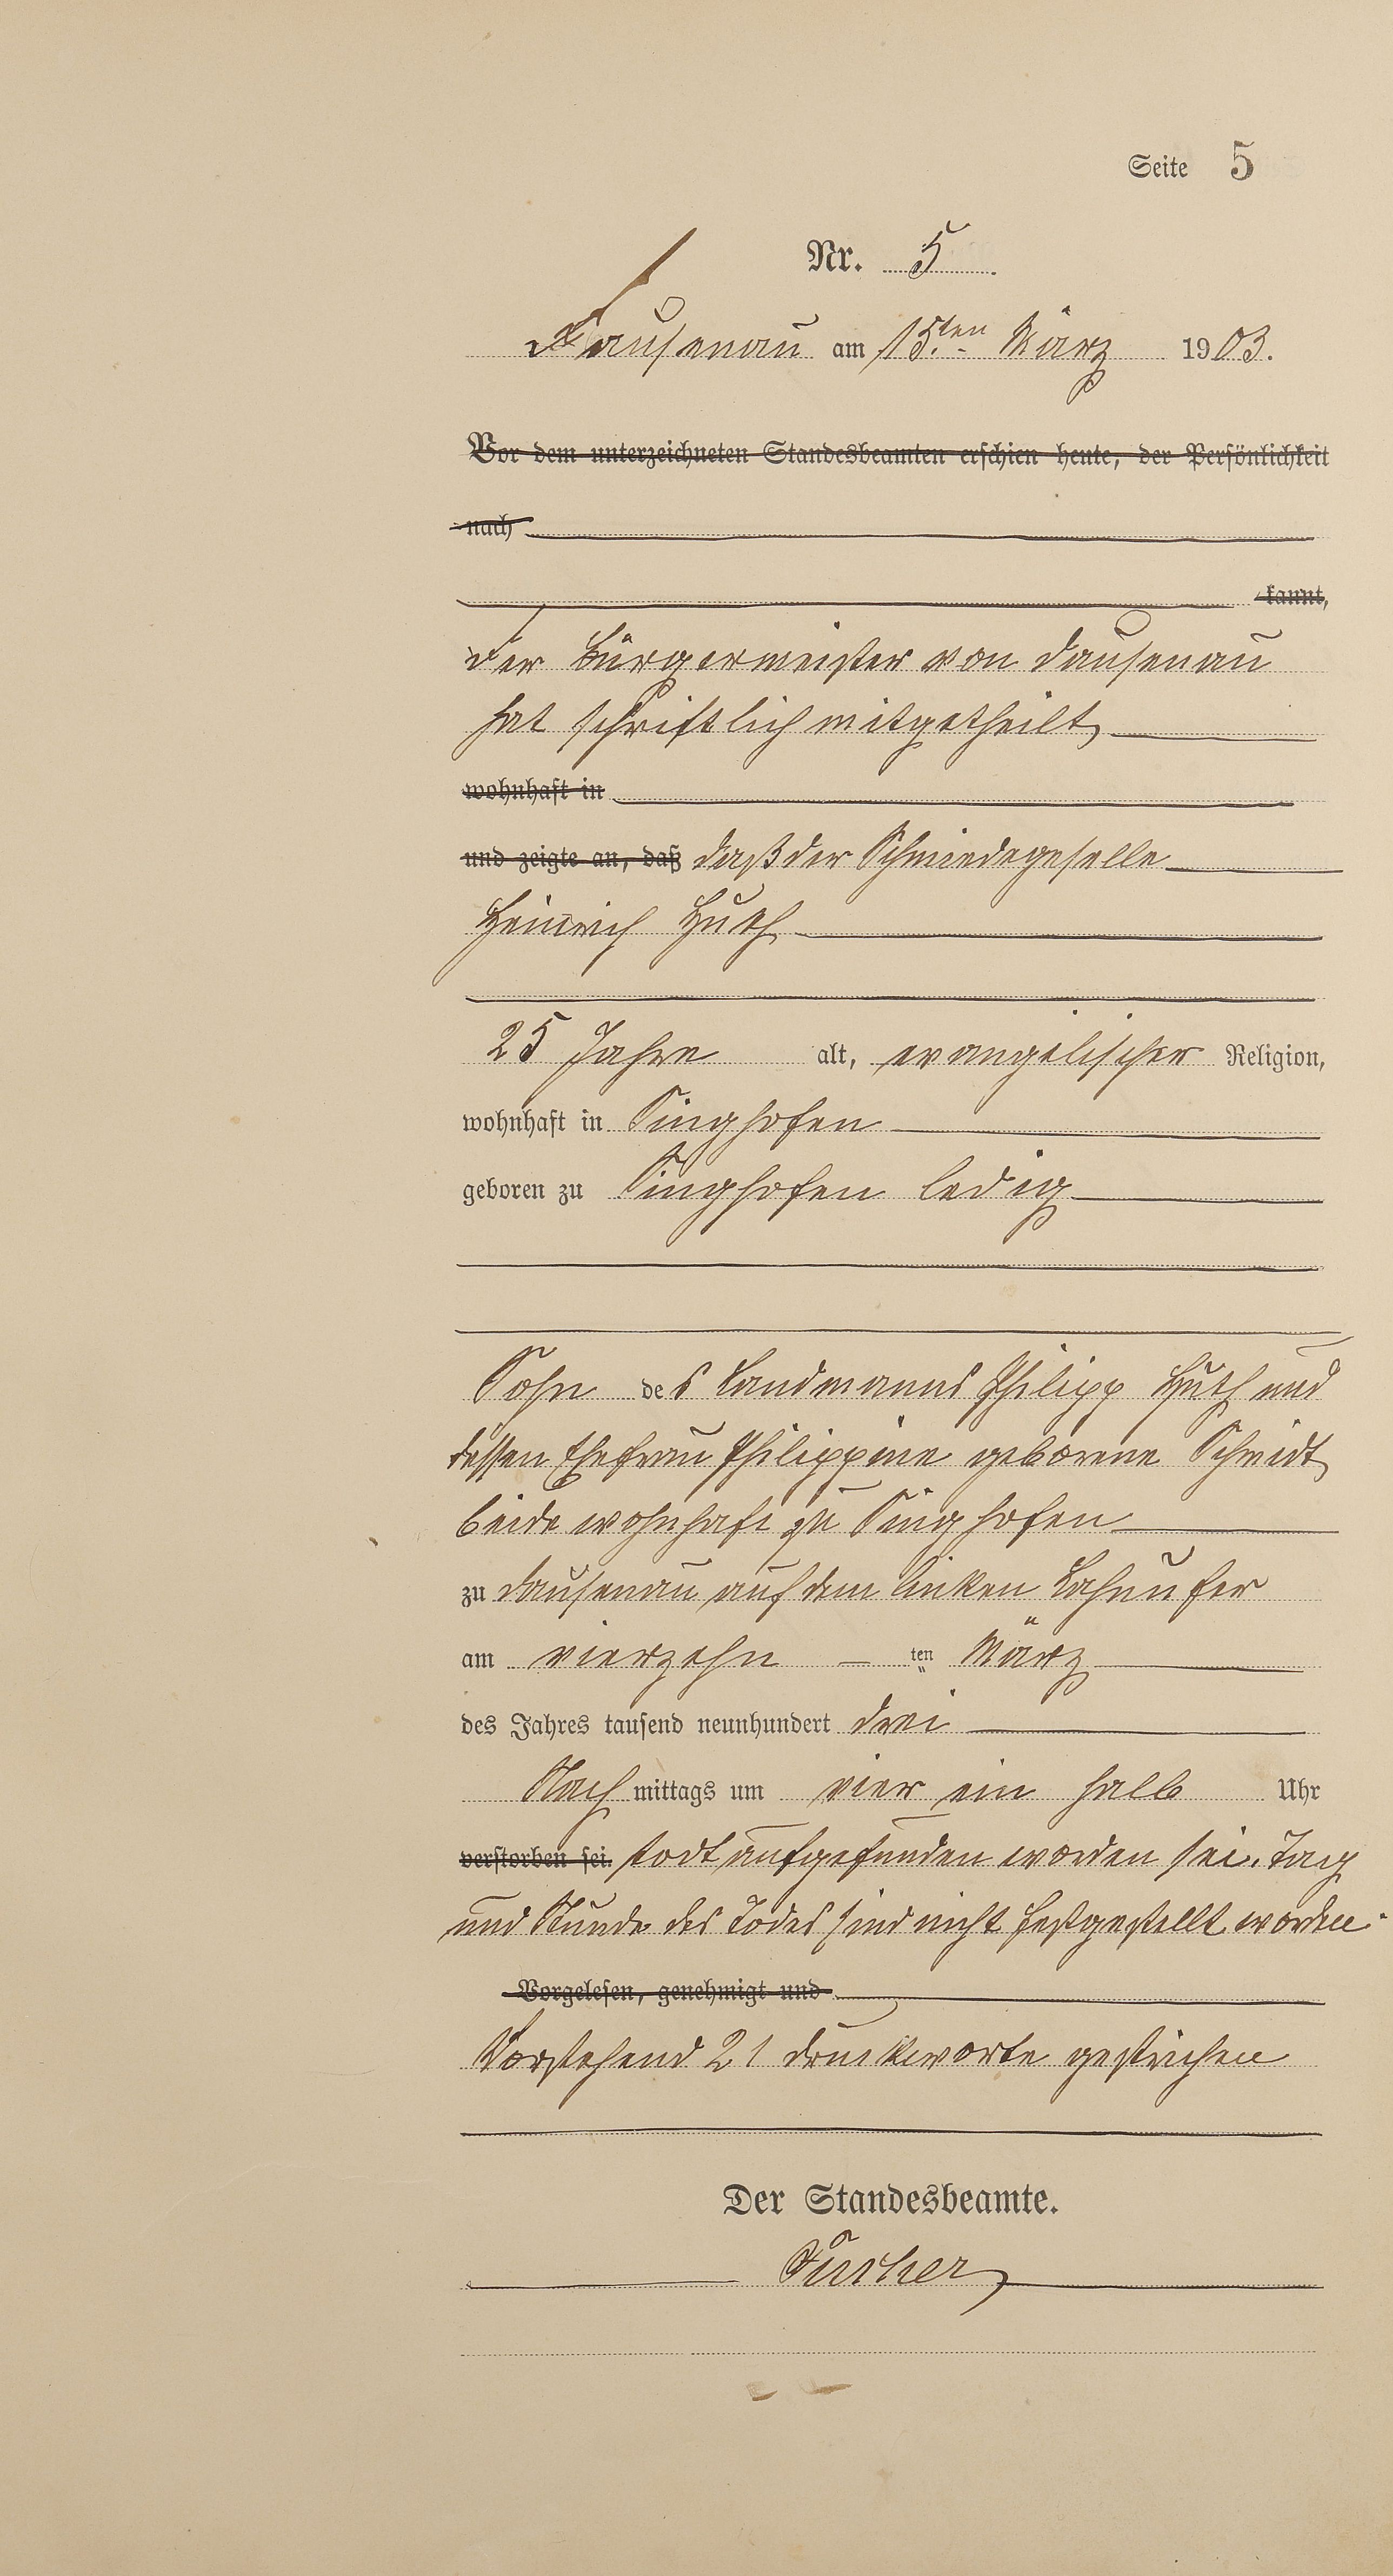 Seite 5
Nr. 5
Dausenau am 15.ten März 1903.
Vor dem unterzeichneten Standesbeamten erschien heute, der Persönlichkeit
nach
kannt,
Der Bürgermeister von Dausenau
hat schriftlich mitgetheilt,
wohnhaft in
und zeigte an, daß daß der Schmiedegeselle
Heinrich Huth
25 Jahre alt, evangelischer Religion,
wohnhaft in Singhofen
geboren zu Singhofen ledig
Sohn des Landmanns Philipp Huth und
dessen Ehefrau Philippine geborene Schmidt
beide wohnhaft zu Singhofen
zu Dausenau auf dem linken Lahnufer
am vierzehn ten März
des Jahres tausend neunhundert drei
Nachmittags um vier ein halb Uhr
verstorben sei. todt aufgefunden worden sei. Tag
und Stunde des Todes sind nicht festgestellt worden.
Vorgelesen, genehmigt und
Vorstehend 21 Druckworte gestrichen
Der Standesbeamte.